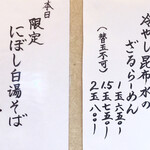 冷やし昆布水の
ざるらーめん
(替玉不可)
1玉六五〇
1.5玉七五〇
2玉八〇〇
本日
限定
にぼし白湯そば